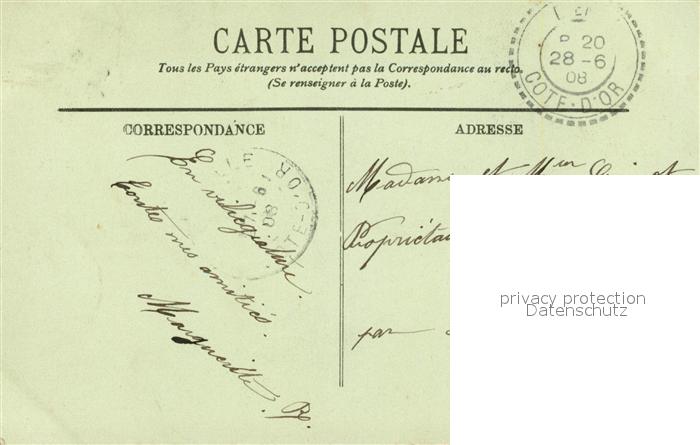 CARTE POSTALE
Tous les Pays étrangers n'acceptent pas la Correspondance au recto.
(Se renseigner à la Poste).
20
28-6
08
COTE-D'OR
CORRESPONDANCE
ADRESSE
En villégiature.
toutes mes amitiés.
Marguerite. B.
08
TE-D'OR
Madame et Mr
Propriétai
par
privacy protection
Datenschutz